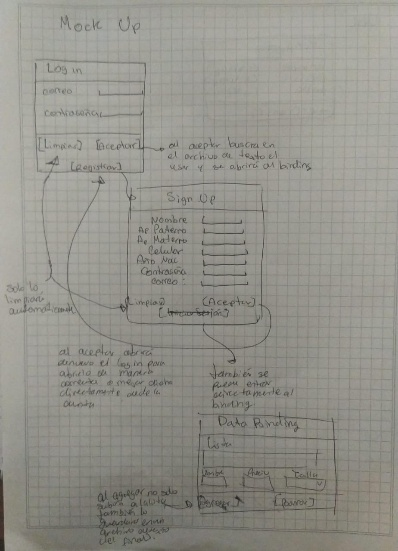 Mock Up
Log in
correo
contraseña
[Limpiar] [Aceptar]
[Registrar]
al aceptar buscara en
el archivo de texto el
user y se abrirá el binding
Sign Up
Nombre
Ap Paterno
Ap Materno
Celular
Año Nac
Contraseña
correo:
[Limpiar] [Aceptar]
solo lo
limpiara
automaticamente
al aceptar abrira
denuevo el log in para
abrirla de manera
correcta o mejor dicho
directamente desde la
cuenta
también se
puede entrar
directamente al
binding
Data Binding
Lista
Nombre Calle
[Borrar]
al agregar no solo
se
también lo
guardara en un
archivo